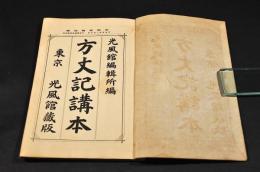 光風館編輯所編
方丈記講本
東京 光風館藏版